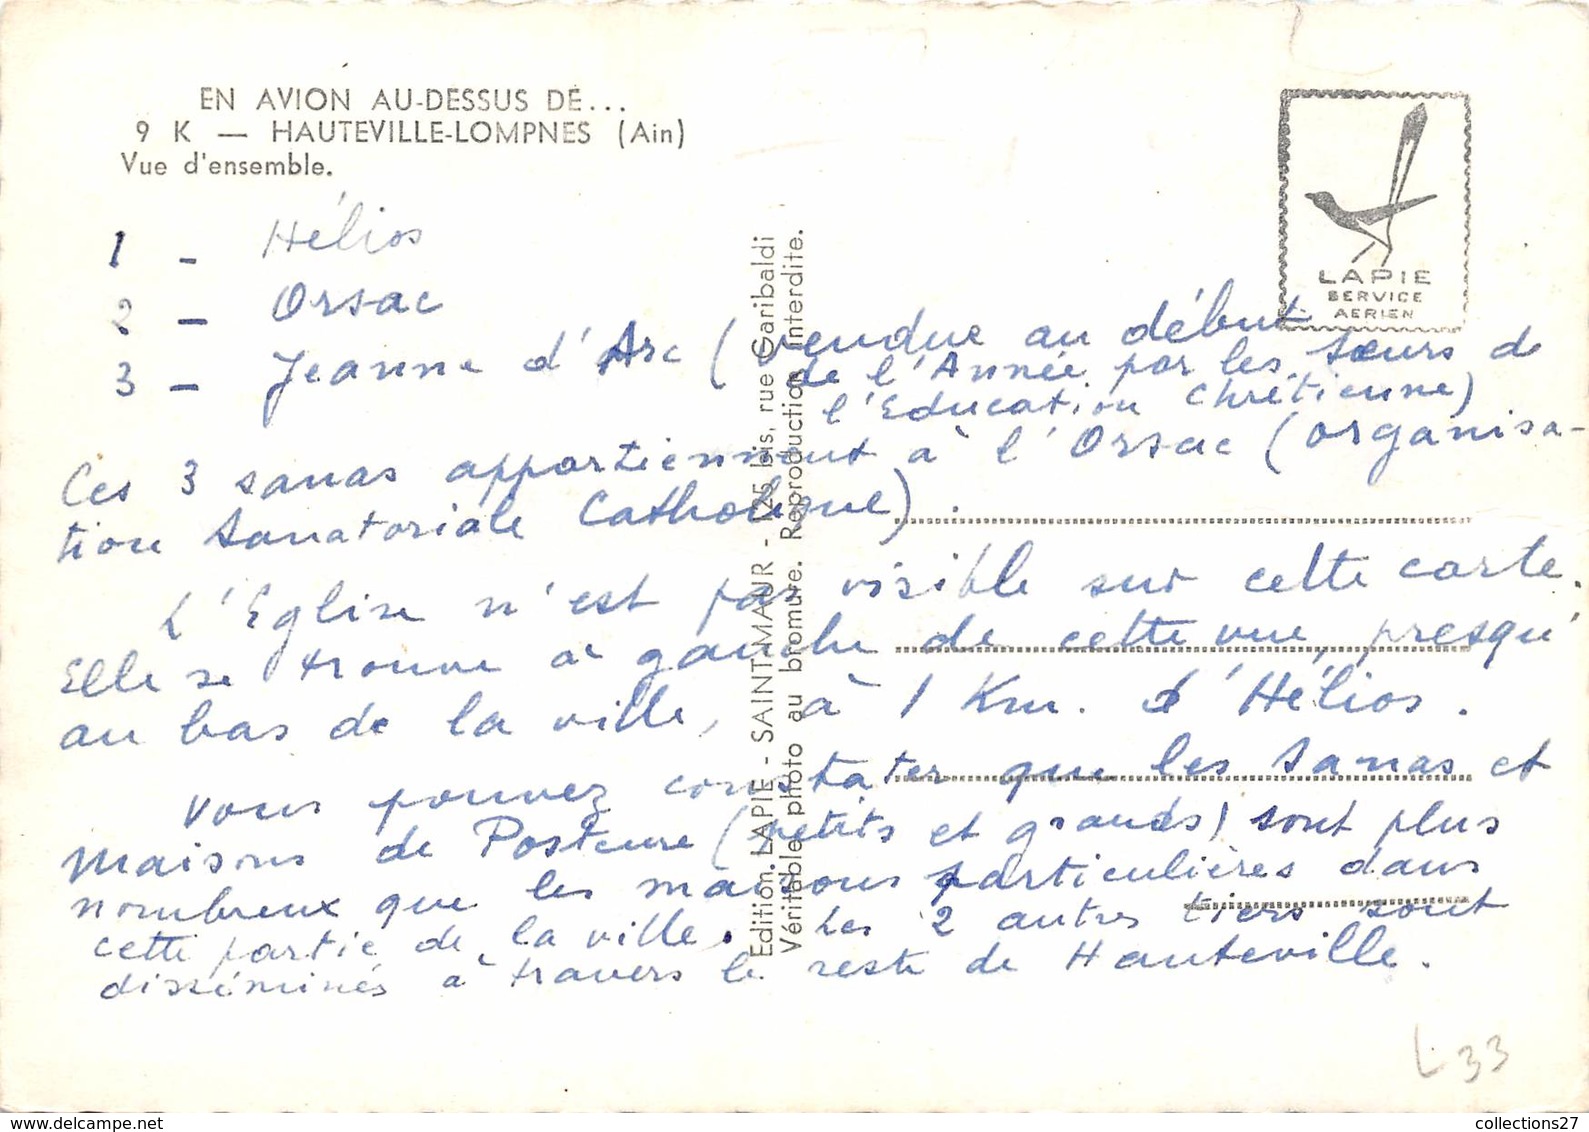 EN AVION AU-DESSUS DE...
9 K — HAUTEVILLE-LOMPNES (Ain)
Vue d'ensemble.
LAPIE
SERVICE
AERIEN
1 - Hélios
2 - Orsac
3 - Jeanne d'Arc (vendue au début
de l'Année par les sœurs de
l'Education Chrétienne)
Ces 3 sanas appartiennent à l'Orsac (organisa-
tion Sanatoriale Catholique).
L'Eglise n'est pas visible sur cette carte.
Elle se trouve à gauche de cette vue, presqu'
au bas de la ville, à 1 Km. d'Hélios.
Vous pouvez constater que les Sanas et
Maisons de Posteure (petits et grands) sont plus
nombreux que les maisons particulières dans
cette partie de la ville. Les 2 autres tiers sont
disséminés à travers le reste de Hauteville.
Edition LAPIE - SAINT-MAUR - 125 bis, rue Garibaldi
Véritable photo au bromure. Reproduction interdite.
L 33
collections27